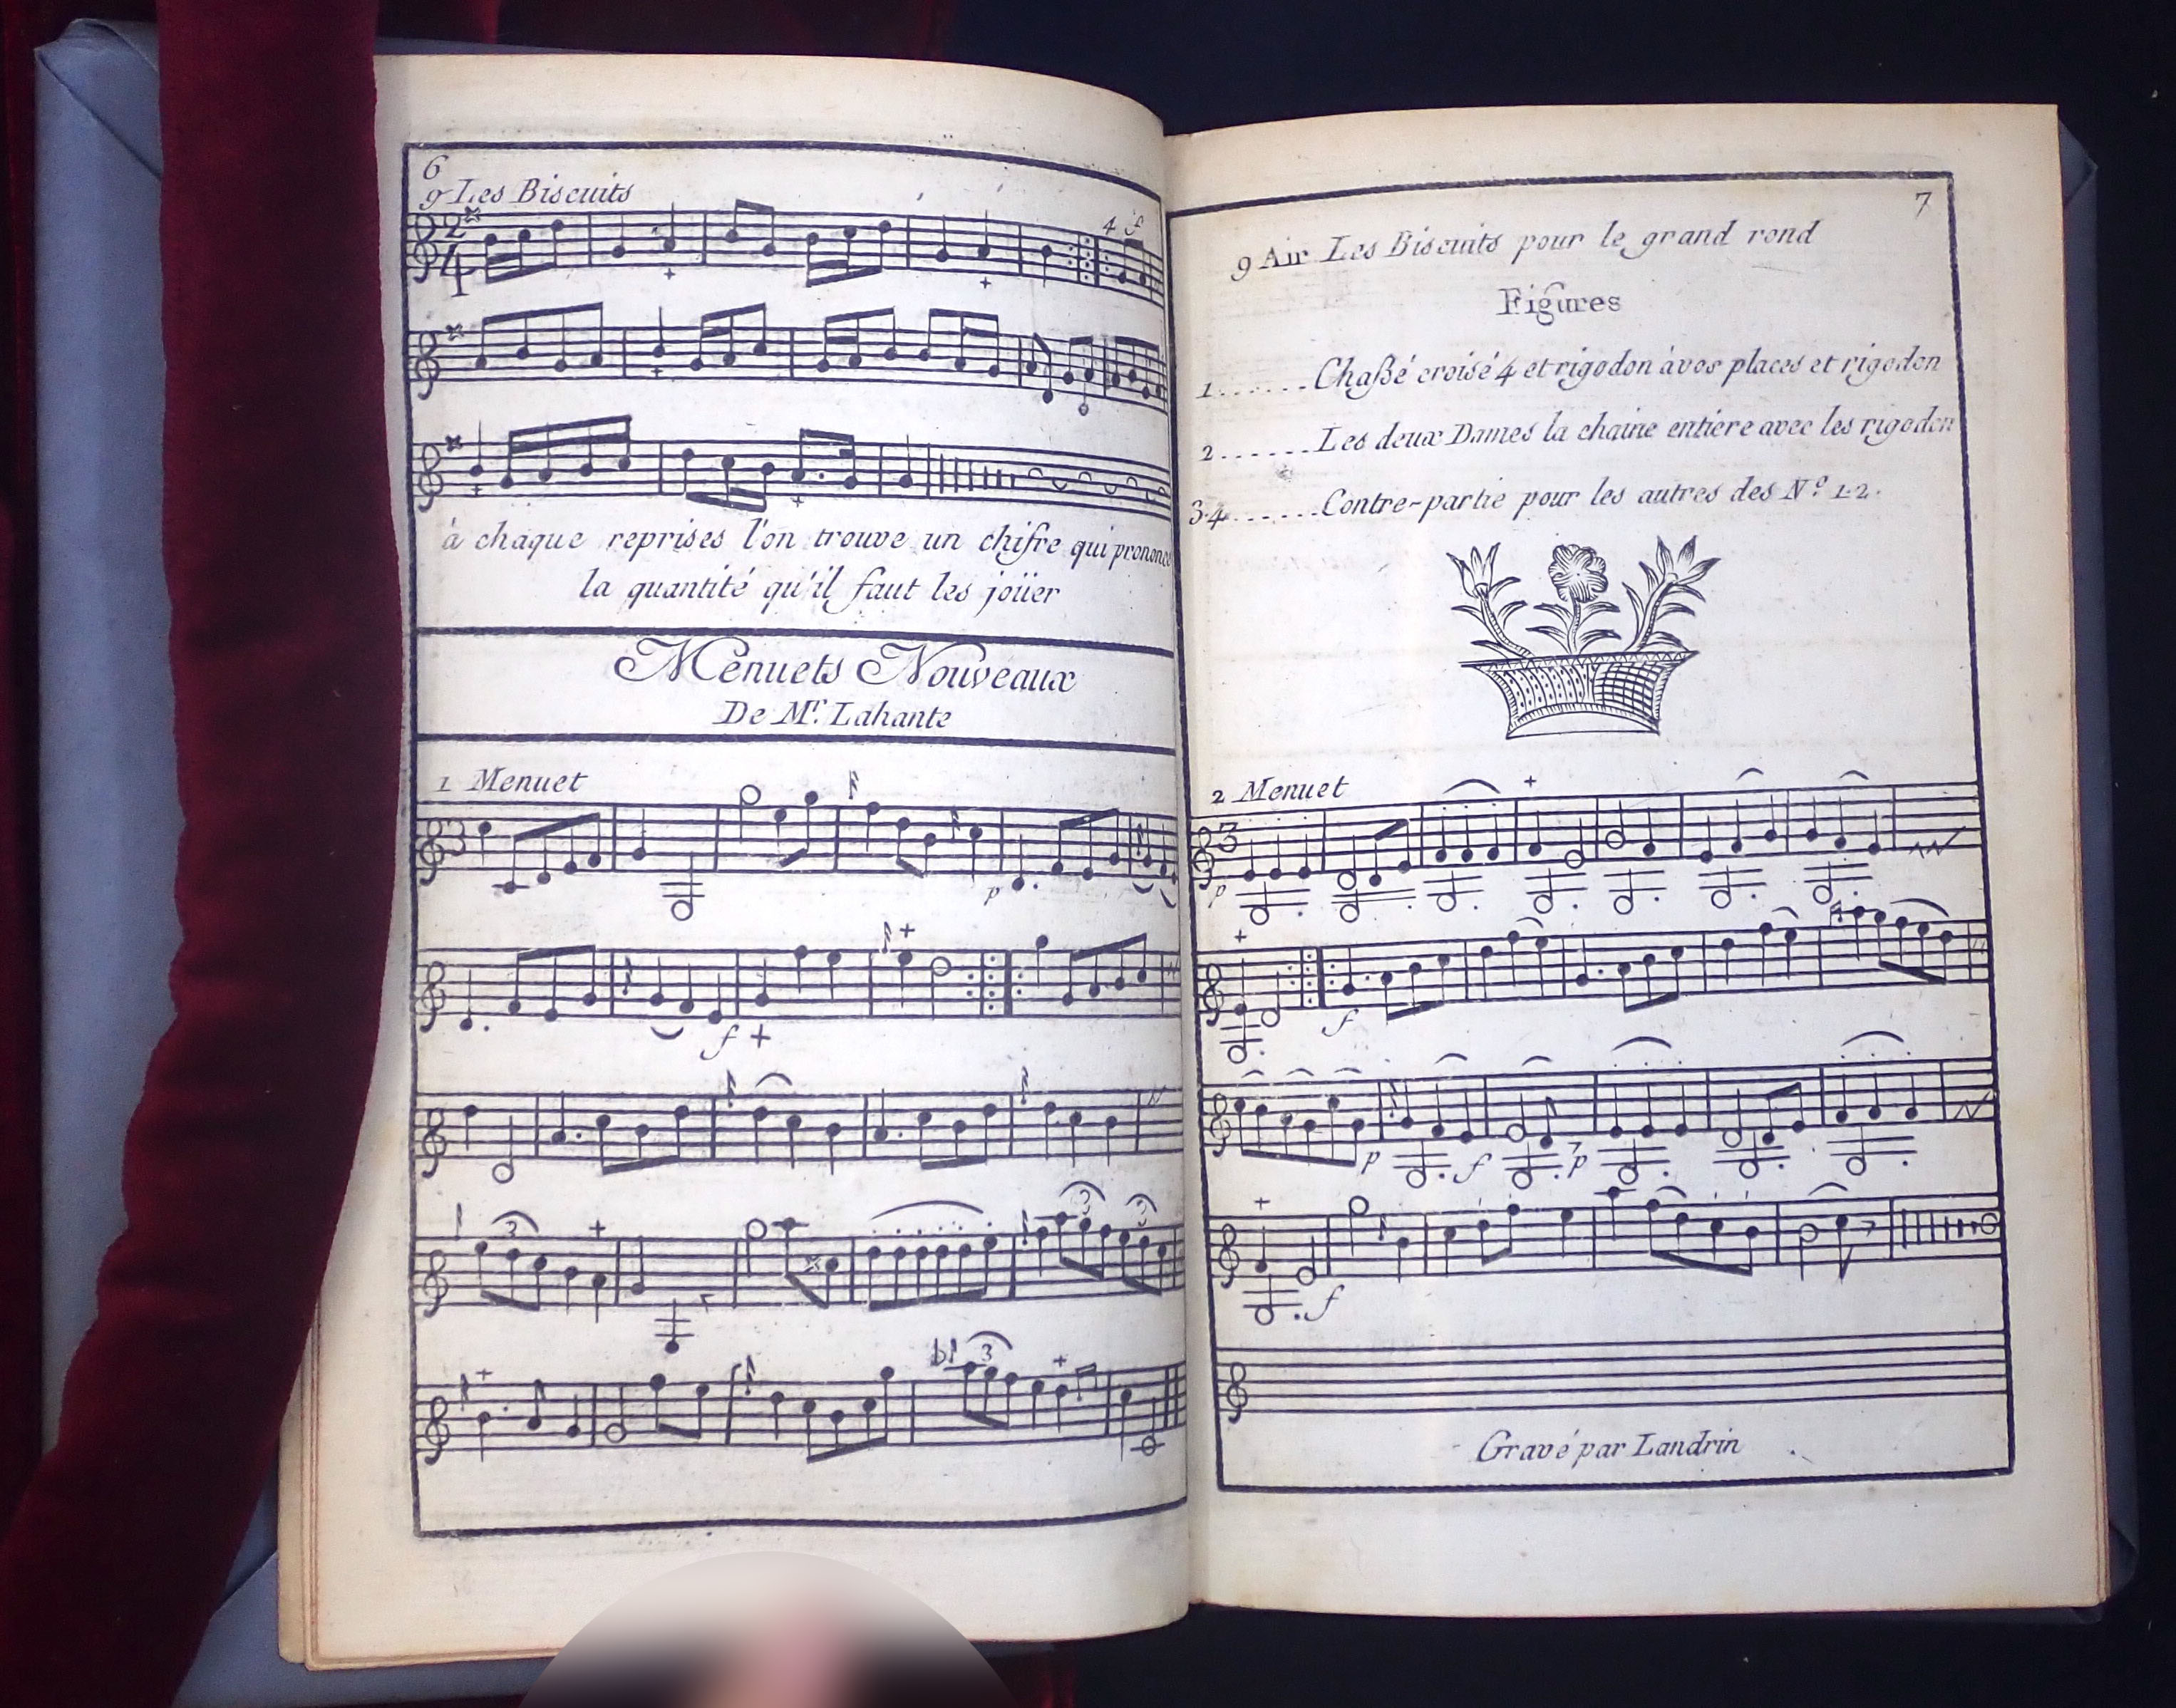 6
9 Les Biscuits
2
4
4 f
à chaque reprises l'on trouve un chifre qui prononce
la quantité qu'il faut les joüer
Menuets Nouveaux
De Mr. Lahante
1 Menuet
3
p
f
3
3
3
3
7
9 Air Les Biscuits pour le grand rond
Figures
1......Chaßé croisé 4 et rigodon à vos places et rigodon
2......Les deux Dames la chaine entiere avec les rigodon
3.4......Contre-partie pour les autres des N.o 1.2.
2 Menuet
3
p
f
p f p
f
Gravé par Landrin